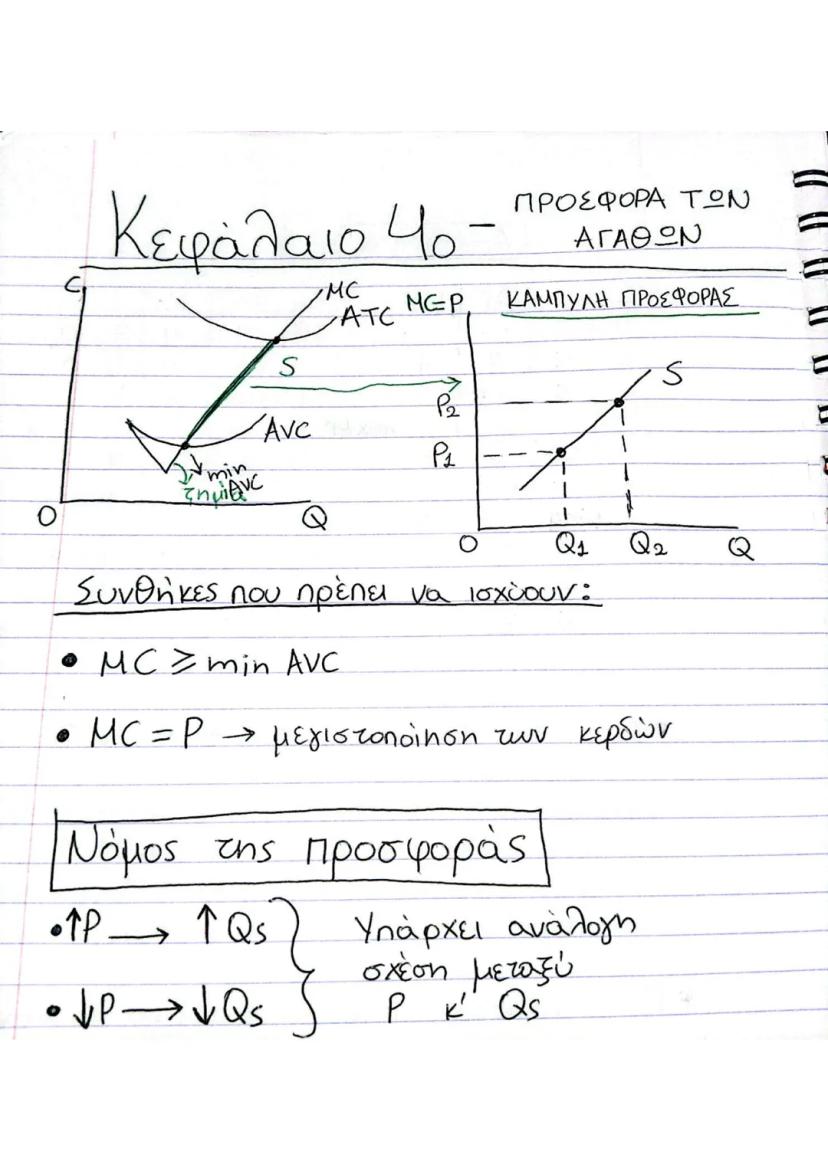 Κεφάλαιο 4ο - ΠΡΟΣΦΟΡΑ ΤΩΝ
ΑΓΑΘΩΝ
C
MC
ATC
S
AVC
min
AVC
ζημία
O
Q
MC=P
ΚΑΜΠΥΛΗ ΠΡΟΣΦΟΡΑΣ
S
P2
P1
O
Q1
Q2
Q
Συνθήκες που πρέπει να ισχύουν:
• MC ≥ min AVC
• MC = P → μεγιστοποίηση των κερδών
Νόμος της προσφοράς
• ↑P → ↑Qs
• ↓P → ↓Qs
Υπάρχει ανάλογη
σχέση μεταξύ
P κ' Qs